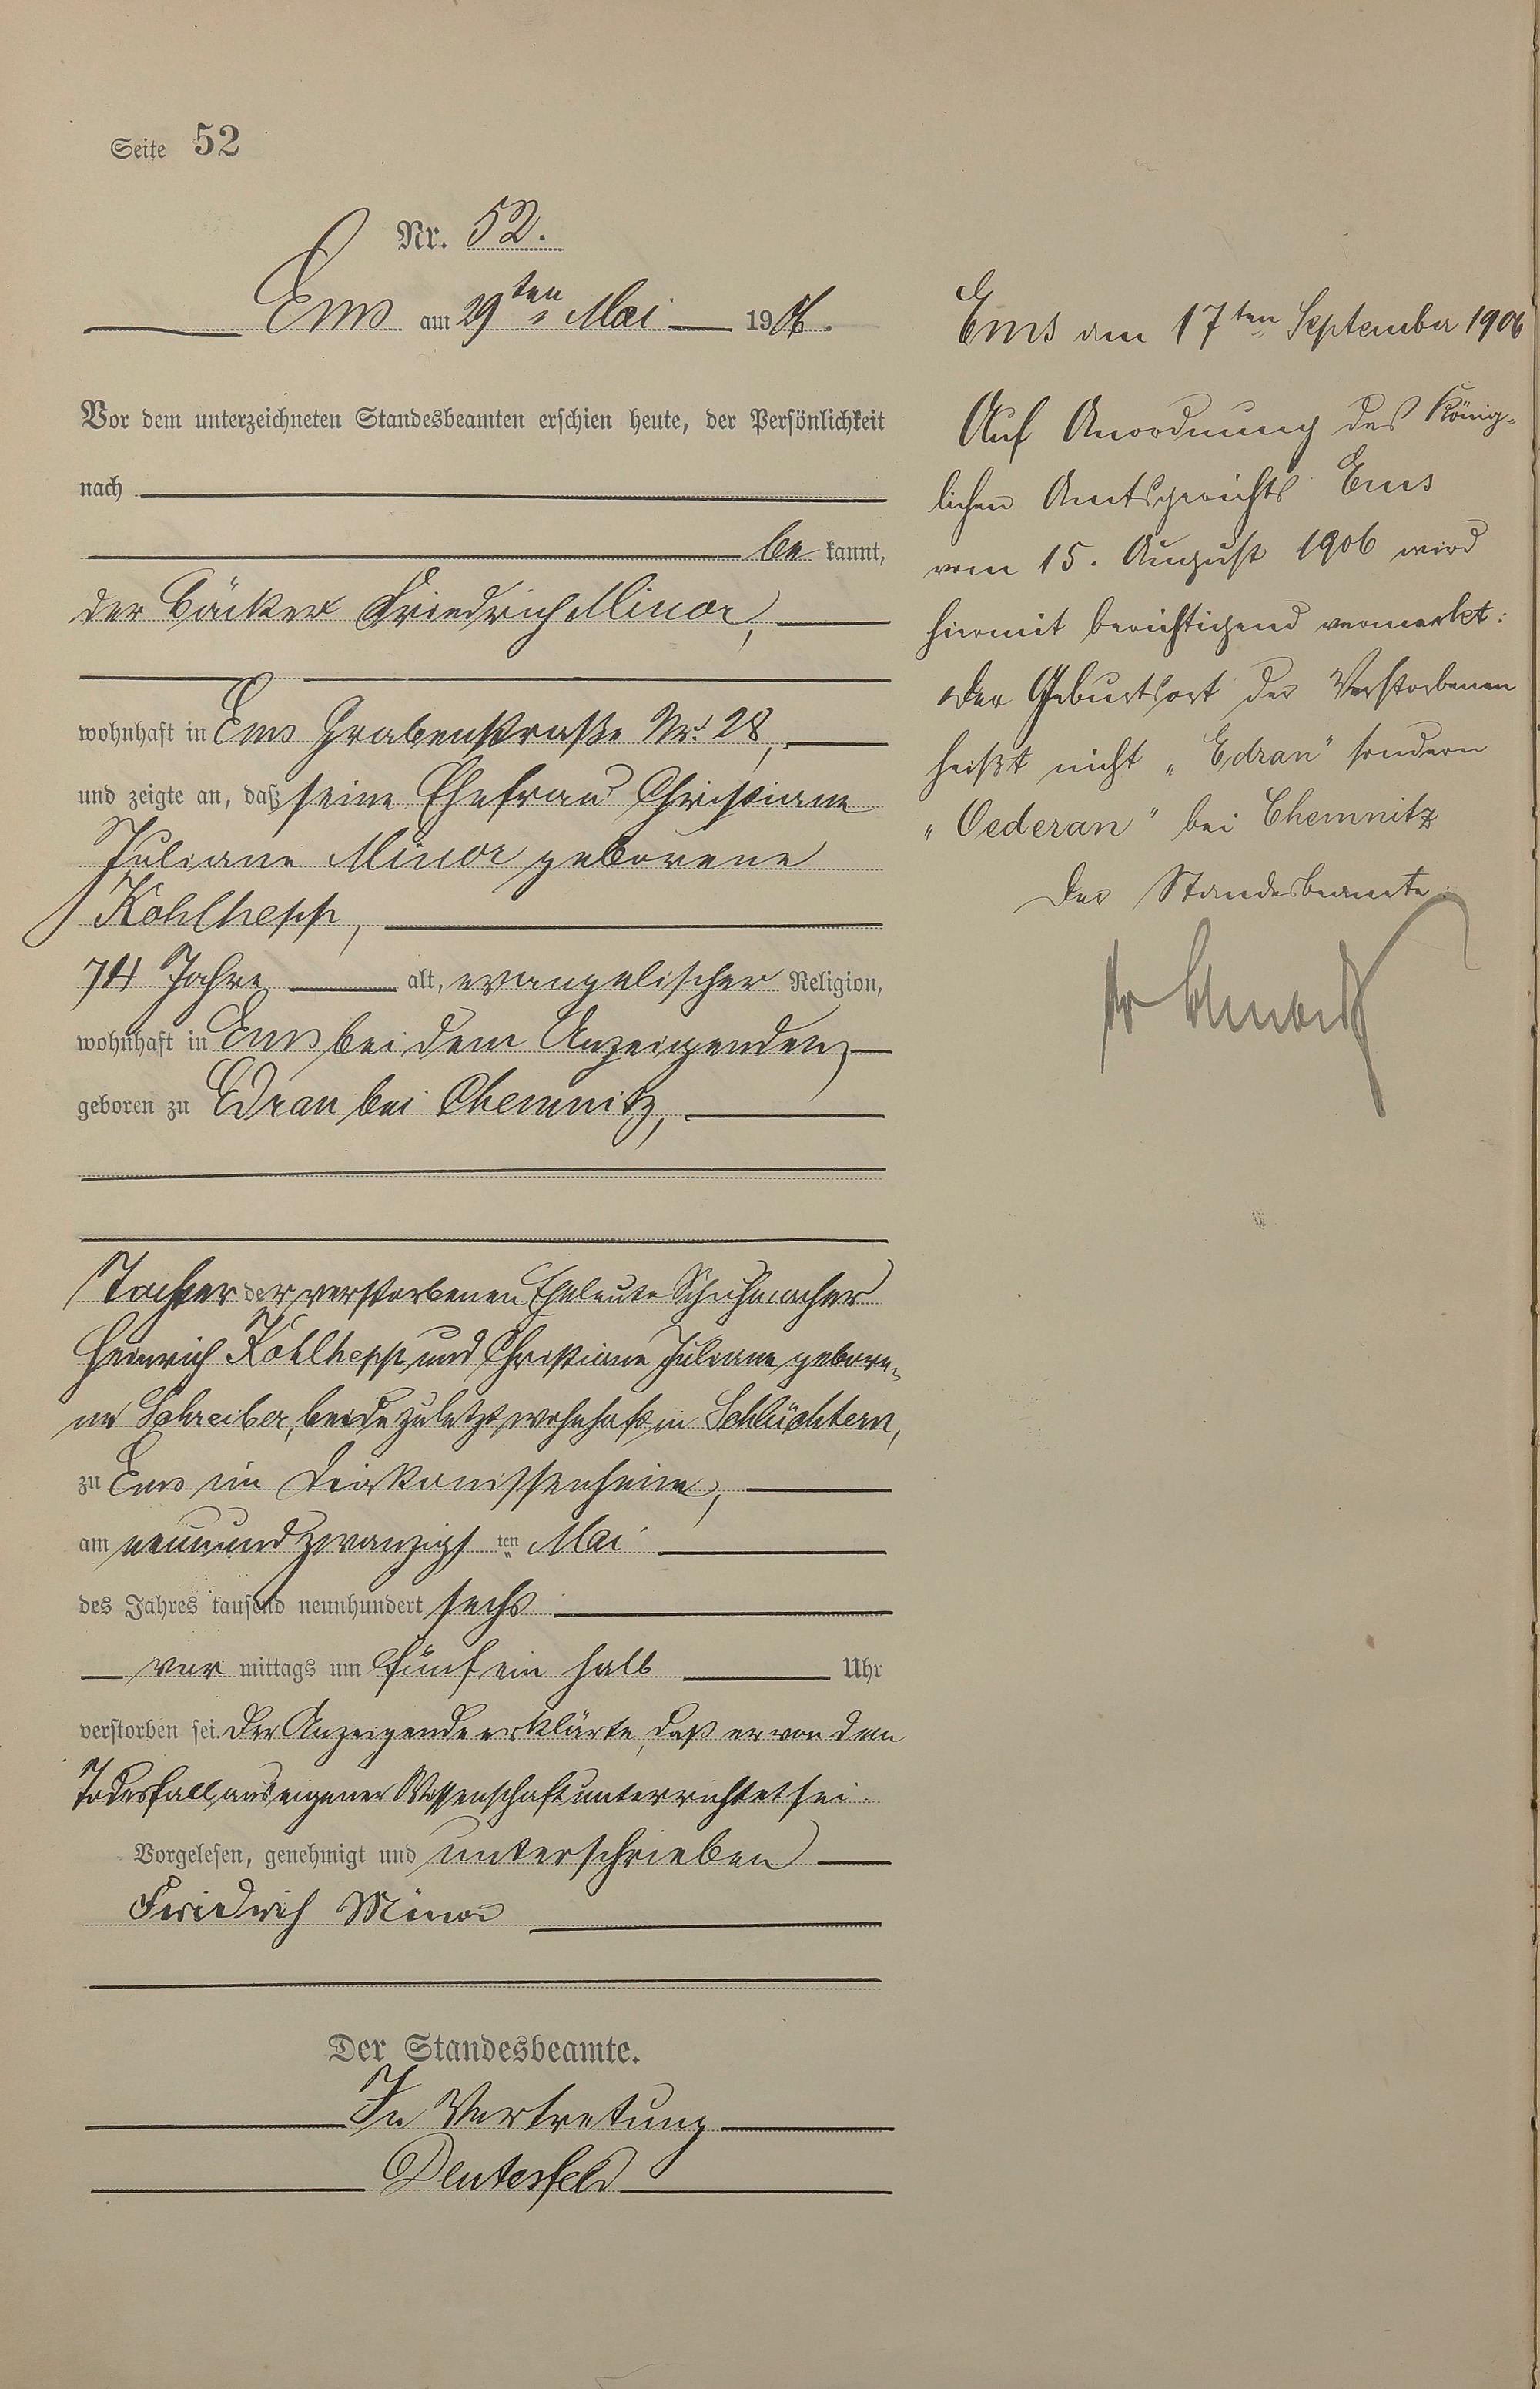 Seite 52
Nr. 52.
Ems am 29ten Mai 1906.
Vor dem unterzeichneten Standesbeamten erschien heute, der Persönlichkeit
nach
be kannt,
der Bäcker Friedrich Minor,
wohnhaft in Ems Grabenstraße Nr. 28,
und zeigte an, daß seine Ehefrau Christiane
Juliane Minor geborene
Kohlhepp,
74 Jahre alt, evangelischer Religion,
wohnhaft in Ems bei dem Anzeigenden,
geboren zu Edran bei Chemnitz,
Tochter der verstorbenen Eheleute Schuhmacher
Heinrich Kohlhepp und Christiane Juliane gebore-
ne Schreiber, beide zuletzt wohnhaft in Schlüchtern,
zu Ems im Diakonissenheim,
am neunundzwanzigsten Mai
des Jahres tausend neunhundert sechs
vor mittags um fünf ein halb Uhr
verstorben sei. Der Anzeigende erklärte, daß er von dem
Todesfall aus eigener Wissenschaft unterrichtet sei.
Vorgelesen, genehmigt und unterschrieben
Friedrich Minor
Der Standesbeamte.
In Vertretung
Deutesfeld
Ems am 17ten September 1906
Auf Anordnung des König-
lichen Amtsgerichts Ems
vom 15. August 1906 wird
hiermit berichtigend vermerkt:
Der Geburtsort der Verstorbenen
heißt nicht "Edran" sondern
"Oederan" bei Chemnitz
Der Standesbeamte.